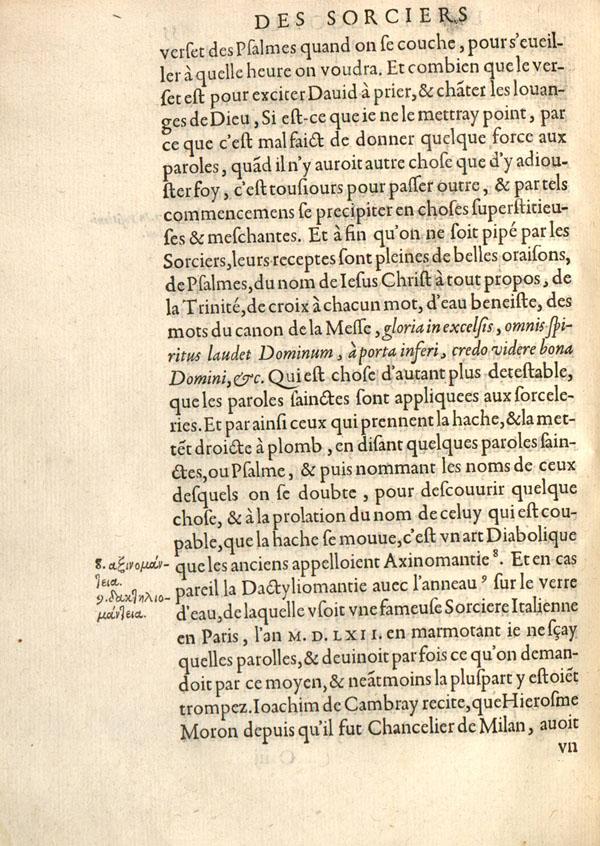 DES SORCIERS
verset des Psalmes quand on se couche, pour s'eueil-
ler à quelle heure on voudra. Et combien que le ver-
set est pour exciter Dauid à prier, & chãter les louan-
ges de Dieu, Si est-ce que ie ne le mettray point, par
ce que c'est mal faict de donner quelque force aux
paroles, quãd il n'y auroit autre chose que d'y adiou-
ster foy, c'est tousiours pour passer outre, & par tels
commencemens se precipiter en choses superstitieu-
ses & meschantes. Et à fin qu'on ne soit pipé par les
Sorciers, leurs receptes sont pleines de belles oraisons,
de Psalmes, du nom de Iesus Christ à tout propos, de
la Trinité, de croix à chacun mot, d'eau beneiste, des
mots du canon de la Messe, gloria in excelsis, omnis spi-
ritus laudet Dominum, à porta inferi, credo videre bona
Domini, &c. Qui est chose d'autant plus detestable,
que les paroles sainctes sont appliquees aux sorcele-
ries. Et par ainsi ceux qui prennent la hache, & la met-
tẽt droicte à plomb, en disant quelques paroles sain-
ctes, ou Psalme, & puis nommant les noms de ceux
desquels on se doubte, pour descouurir quelque
chose, & à la prolation du nom de celuy qui est cou-
pable, que la hache se mouue, c'est vn art Diabolique
que les anciens appelloient Axinomantie 8. Et en cas
pareil la Dactyliomantie auec l'anneau 9 sur le verre
d'eau, de laquelle vsoit vne fameuse Sorciere Italienne
en Paris, l'an M. D. LXII. en marmotant ie ne sçay
quelles parolles, & deuinoit par fois ce qu'on deman-
doit par ce moyen, & neãtmoins la pluspart y estoiẽt
trompez. Ioachim de Cambray recite, que Hierosme
Moron depuis qu'il fut Chancelier de Milan, auoit
vn
8. αξινομάν-
τεια.
9. δακτηλιο-
μάντεια.